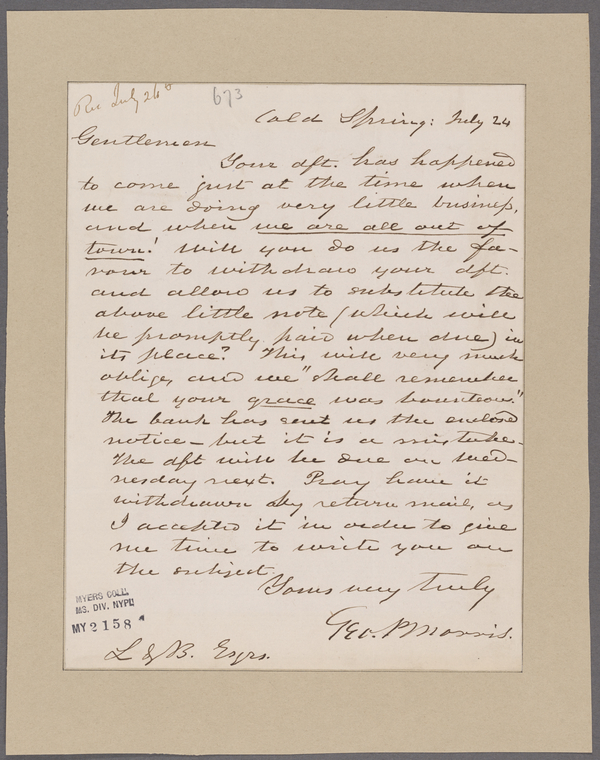 Rec July 26th
673
Cold Spring: July 24
Gentlemen
Your dft. has happened
to come just at the time when
we are doing very little business,
and when we are all out of
town! Will you do us the fa-
vour to withdraw your dft.
and allow us to substitute the
above little note (which will
be promptly paid when due) in
its place? This will very much
oblige, and we "shall remember
that your grace was bounteous."
The bank has sent us the enclosed
notice – but it is a mistake.
The dft will be due on Wed-
nesday next. Pray have it
withdrawn by return mail, as
I accepted it in order to give
me time to write you on
the subject.
Yours very truly
Geo. P. Morris.
L & B. Esqrs.
MYERS COLL.
MS. DIV. NYPL
MY 2158